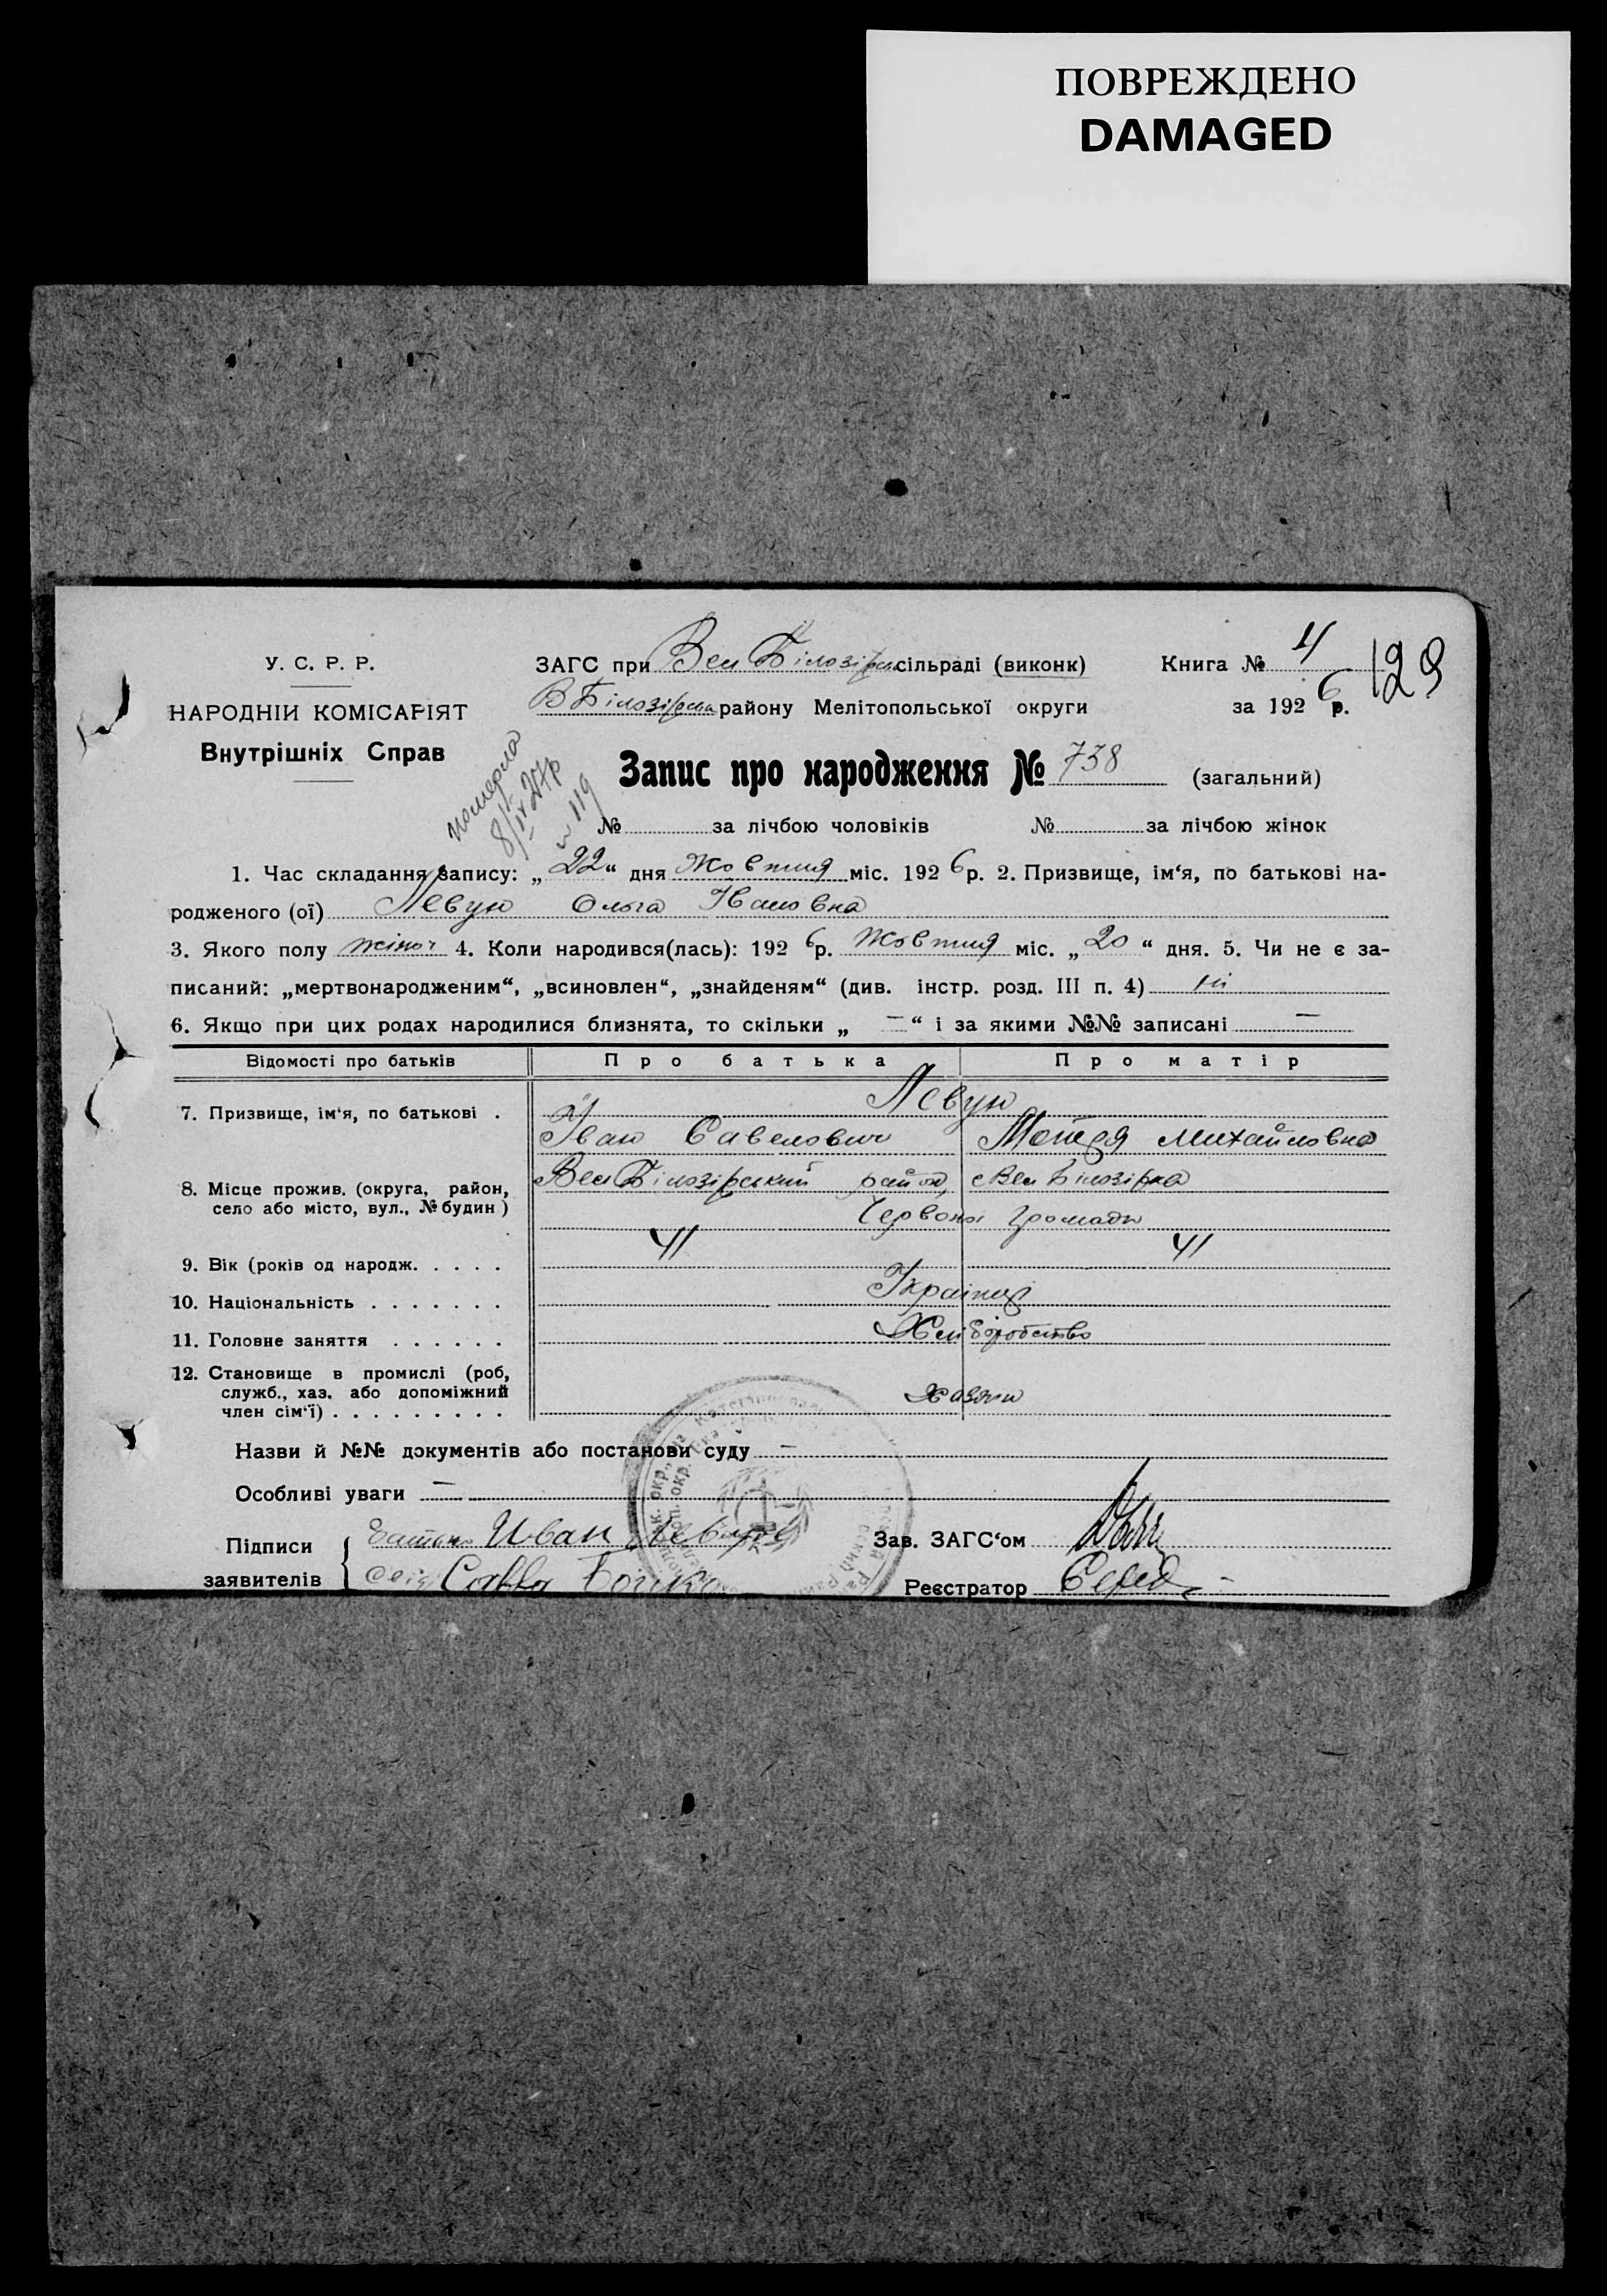 ПОВРЕЖДЕНО
DAMAGED
У. С. Р. Р.
НАРОДНІЙ КОМІСАРІЯТ
Внутрішніх Справ
ЗАГС при Вел Білозірск сільраді (виконк)
В Білозірск району Мелітопольської округи
Книга № 4
129
за 1926 р.
померла
8/IV 27 р
№ 119
Запис про народження № 738 (загальний)
№ за лічбою чоловіків № за лічбою жінок
1. Час складання запису: „22“ дня Жовтня міс. 1926 р. 2. Призвище, ім‘я, по батькові на-
родженого (ої) Левун Ольга Івановна
3. Якого полу жіноч 4. Коли народився(лась): 1926 р. Жовтня міс. „20“ дня. 5. Чи не є за-
писаний: „мертвонародженим“, „всиновлен“, „знайденям“ (див. інстр. розд. III п. 4) ні
6. Якщо при цих родах народилися близнята, то скільки „—“ і за якими №№ записані —
Відомості про батьків Про батька Про матір
7. Призвище, ім‘я, по батькові . Левун
Іван Савелович Мотря Михайловна
8. Місце прожив. (округа, район, село або місто, вул., № будин) Вел Білозірський район, с Вел Білозірка
Червоної Громади
9. Вік (років од народж. . . . . 41 41
10. Національність . . . . . . . Українці
11. Головне заняття . . . . . . Хліборобство
12. Становище в промислі (роб,
служб., хаз. або допоміжний
член сім‘ї) . . . . . . . . . Хазяїн
Назви й №№ документів або постанови суду —
Особливі уваги —
Підписи
заявителів
батько Иван Левун
Савва Бойко
Зав. ЗАГС‘ом
Реєстратор Серед